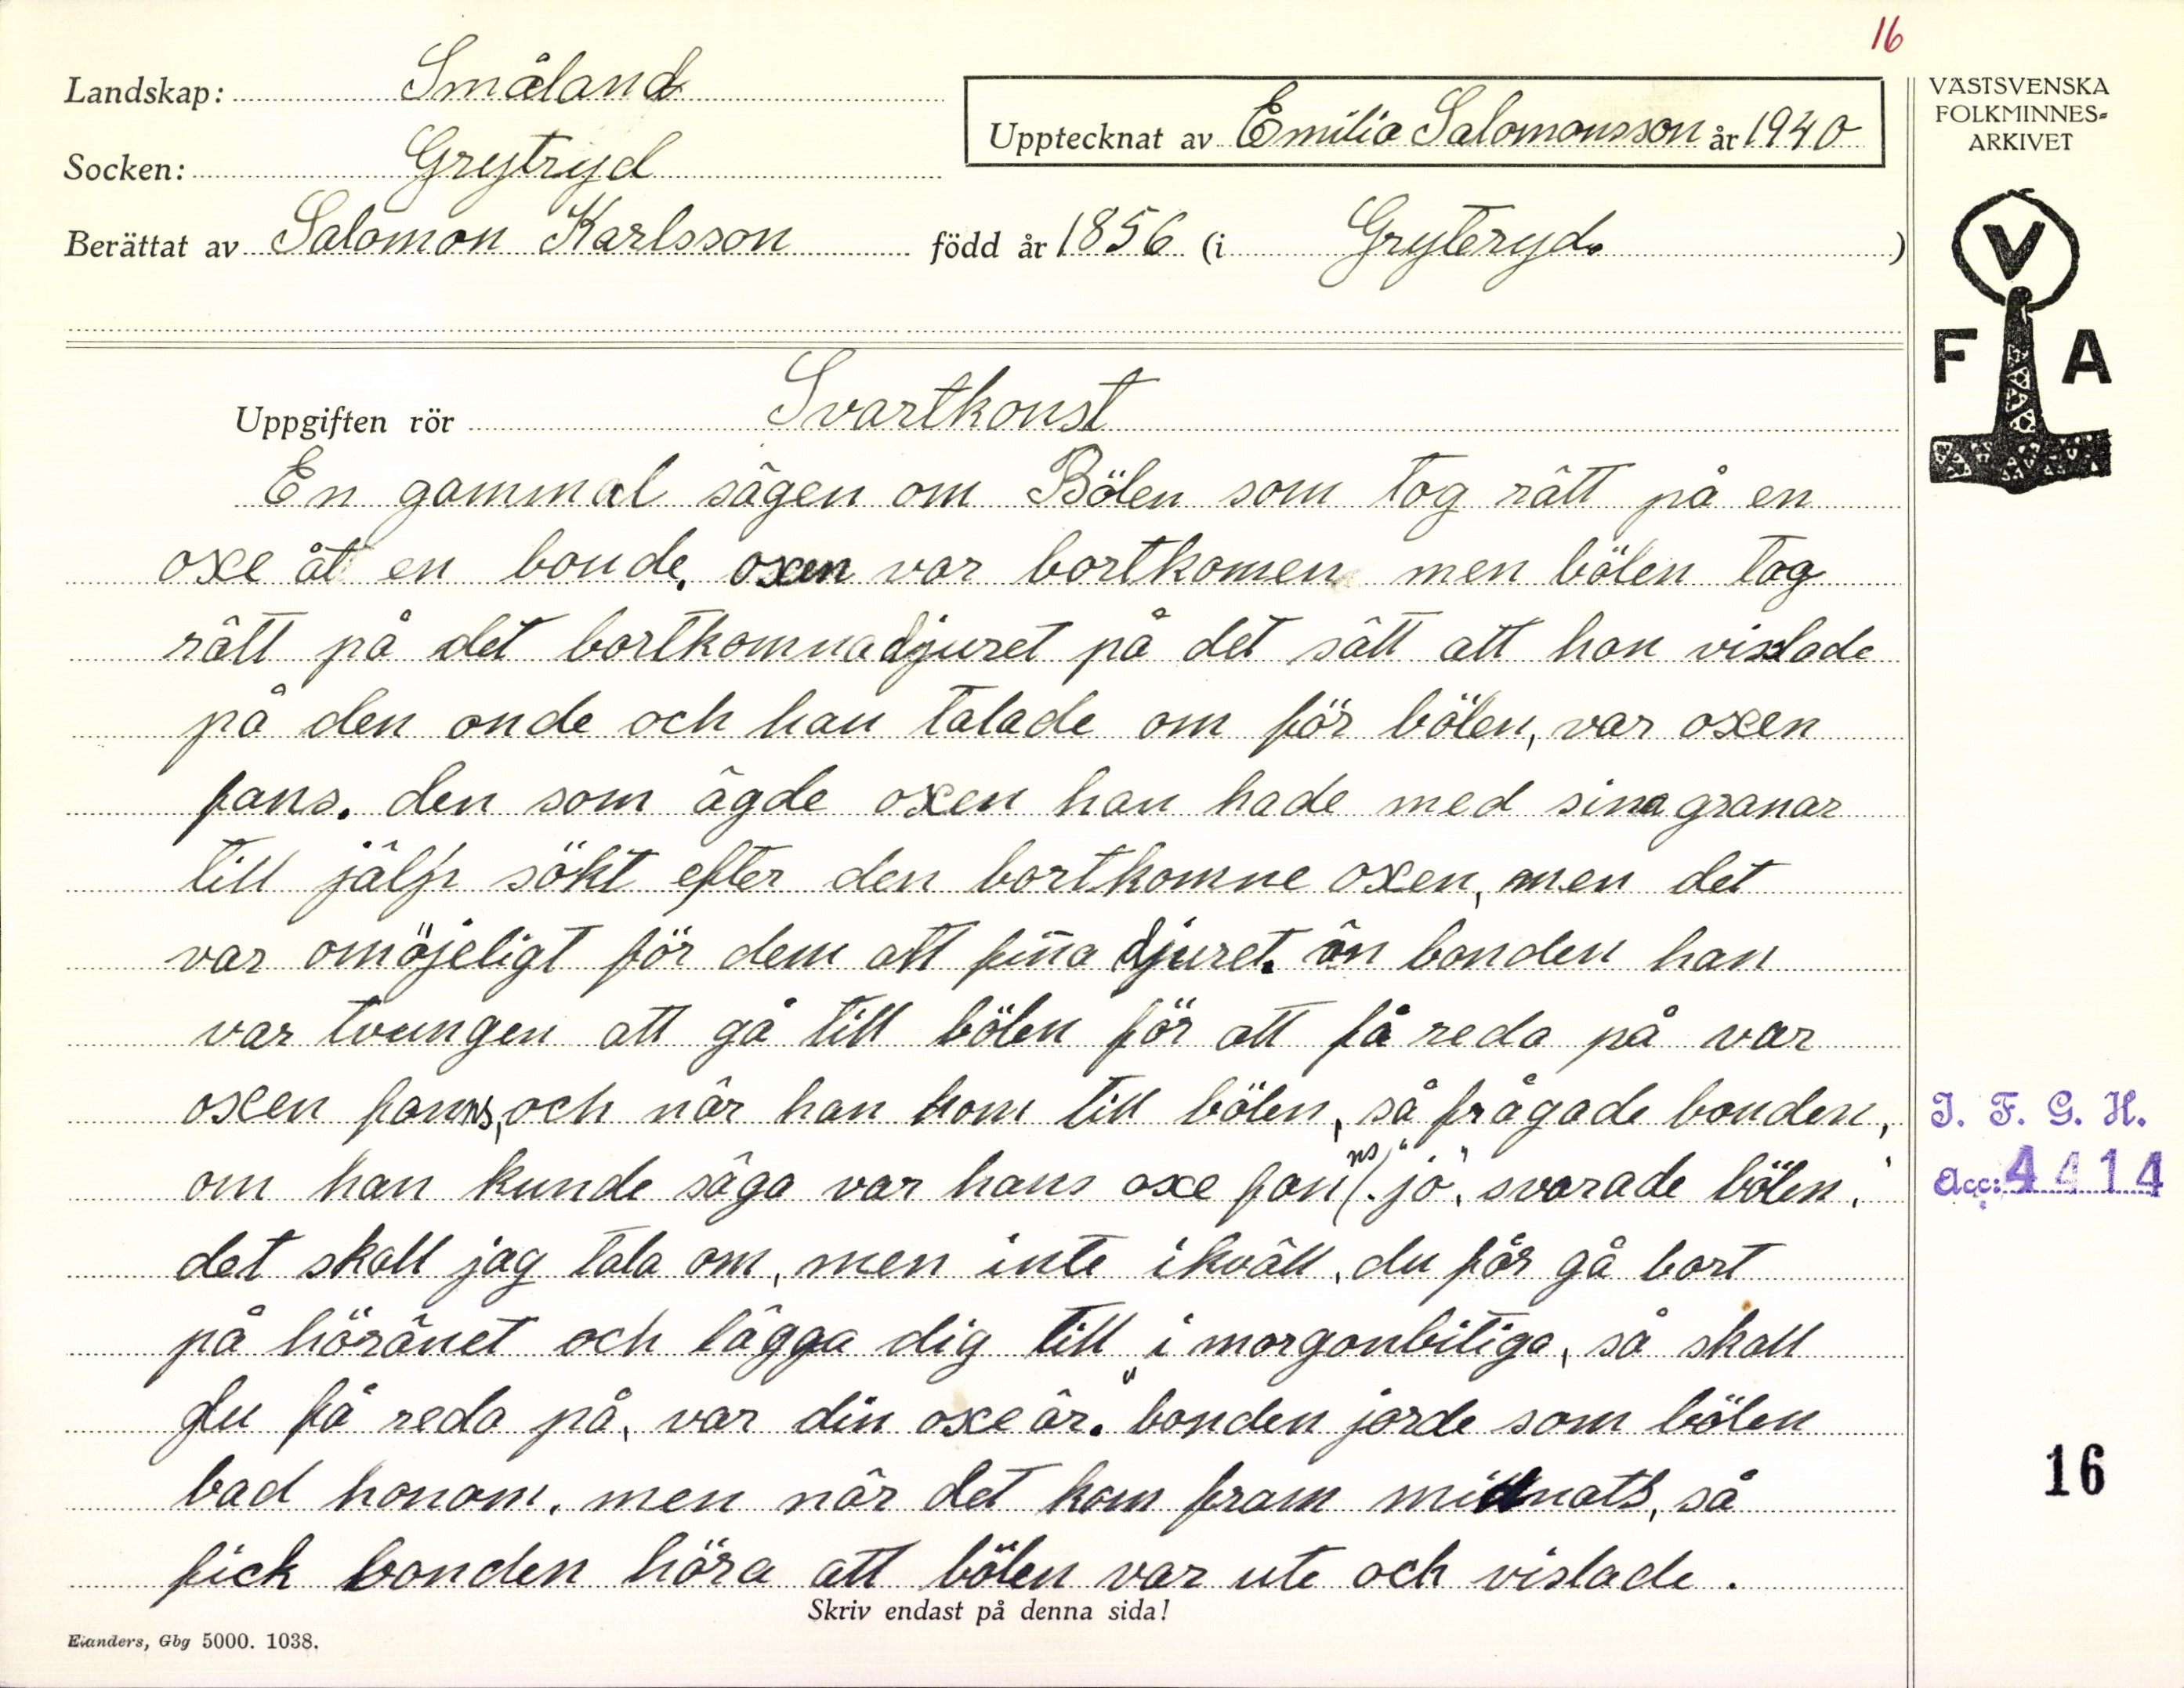 16
Landskap: Småland
Socken: Grytryd
Upptecknat av Emilia Salomonsson år 1940
Berättat av Salomon Karlsson född år 1856 (i Gryteryd.)
VÄSTSVENSKA
FOLKMINNES=
ARKIVET
V
F A
Uppgiften rör Svartkonst
En gammal sägen om Bölen som tog rätt på en
oxe åt en bonde. oxen var bortkomen men bölen tog
rätt på det bortkomnadjuret på det sätt att han vislade
på den onde och han talade om för bölen, var oxen
fans. den som ägde oxen han hade med sina granar
till jälp sökt efter den bortkomne oxen, men det
var omöjeligt för dem att fina djuret. än bonden han
var tvungen att gå till bölen för att få reda på var
oxen fanns, och när han kom till bölen, så frågade bonden,
om han kunde säga var hans oxe fanns. "jo", svarade bölen, "
det skall jag tala om, men inte ikväll, du får gå bort
på höränet och lägga dig till i morgonbitiga, så skall
du få reda på, var din oxe är." bonden jorde som bölen
bad honom, men när det kom fram midnatt, så
fick bonden höra att bölen var ute och vislade.
Skriv endast på denna sida!
Elanders, Gbg 5000. 1038.
I. F. G. H.
Acc: 4414
16